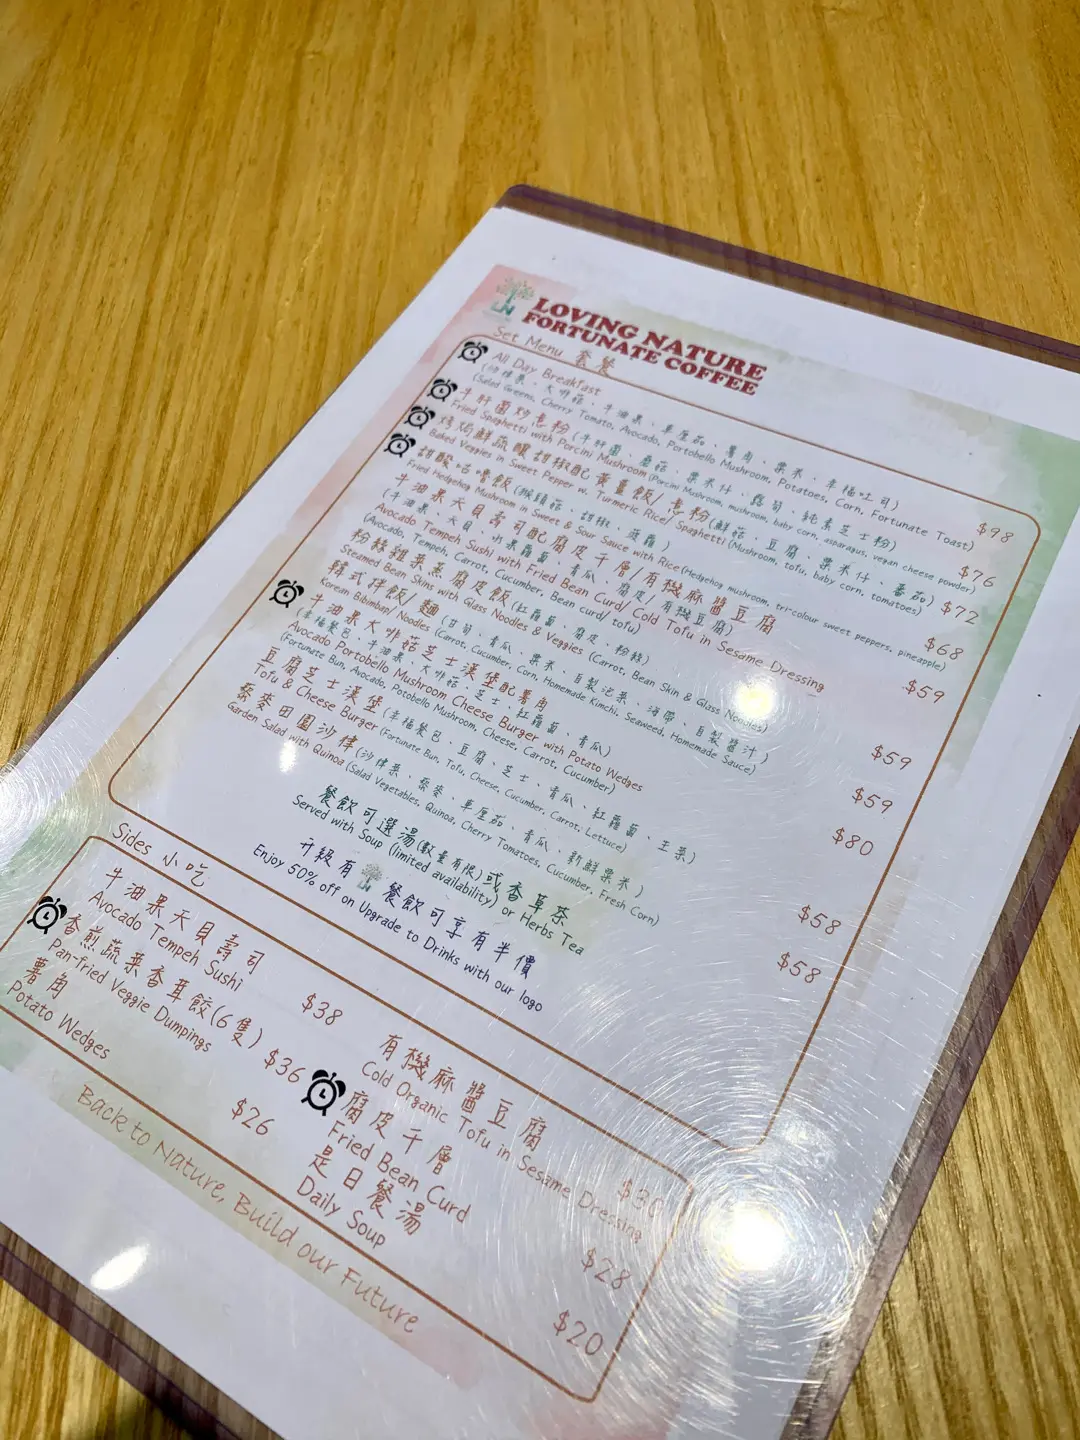 LOVING NATURE
FORTUNATE COFFEE
Set Menu 套餐
All Day Breakfast
(沙律菜、大啡菇、牛油果、車厘茄、薯角、粟米、幸福吐司)
(Salad Greens, Cherry Tomato, Avocado, Portobello Mushroom, Potatoes, Corn, Fortunate Toast) $98
牛肝菌炒意粉 (牛肝菌、蘑菇、粟米仔、露筍、純素芝士粉)
Fried Spaghetti with Porcini Mushroom (Porcini Mushroom, mushroom, baby corn, asparagus, vegan cheese powder) $76
烤焗鮮蔬釀甜椒配黃薑飯/意粉 (鮮菇、豆腐、粟米仔、番茄)
Baked Veggies in Sweet Pepper w. Turmeric Rice/ Spaghetti (Mushroom, tofu, baby corn, tomatoes) $72
甜酸咕嚕飯 (猴頭菇、甜椒、菠蘿)
Fried Hedgehog Mushroom in Sweet & Sour Sauce with Rice (Hedgehog mushroom, tri-colour sweet peppers, pineapple) $68
牛油果天貝壽司配腐皮千層/有機麻醬豆腐
(牛油果、天貝、水果蘿蔔、青瓜、腐皮/有機豆腐)
Avocado Tempeh Sushi with Fried Bean Curd/ Cold Tofu in Sesame Dressing
(Avocado, Tempeh, Carrot, Cucumber, Bean curd/ tofu) $59
粉絲雜菜蒸腐皮飯 (紅蘿蔔、腐皮、粉絲)
Steamed Bean Skins with Glass Noodles & Veggies (Carrot, Bean Skin & Glass Noodles) $59
韓式拌飯/麵 (甘筍、青瓜、粟米、自製泡菜、海帶、自製醬汁)
Korean Bibimbap/ Noodles (Carrot, Cucumber, Corn, Homemade Kimchi, Seaweed, Homemade Sauce) $59
牛油果大啡菇芝士漢堡配薯角
(幸福餐包、牛油果、大啡菇、芝士、紅蘿蔔、青瓜)
Avocado Portobello Mushroom Cheese Burger with Potato Wedges
(Fortunate Bun, Avocado, Potobello Mushroom, Cheese, Carrot, Cucumber) $80
豆腐芝士漢堡 (幸福餐包、豆腐、芝士、青瓜、紅蘿蔔、生菜)
Tofu & Cheese Burger (Fortunate Bun, Tofu, Cheese, Cucumber, Carrot, Lettuce) $58
藜麥田園沙律 (沙律菜、藜麥、車厘茄、青瓜、新鮮粟米)
Garden Salad with Quinoa (Salad Vegetables, Quinoa, Cherry Tomatoes, Cucumber, Fresh Corn) $58
餐飲可選湯(數量有限)或香草茶
Served with Soup (limited availability) or Herbs Tea
升級有 餐飲可享有半價
Enjoy 50% off on Upgrade to Drinks with our logo
Sides 小吃
牛油果天貝壽司
Avocado Tempeh Sushi $38
香煎蔬菜香茸餃(6隻)
Pan-fried Veggie Dumpings $36
薯角
Potato Wedges $26
有機麻醬豆腐
Cold Organic Tofu in Sesame Dressing $30
腐皮千層
Fried Bean Curd $28
是日餐湯
Daily Soup $20
Back to Nature, Build our Future